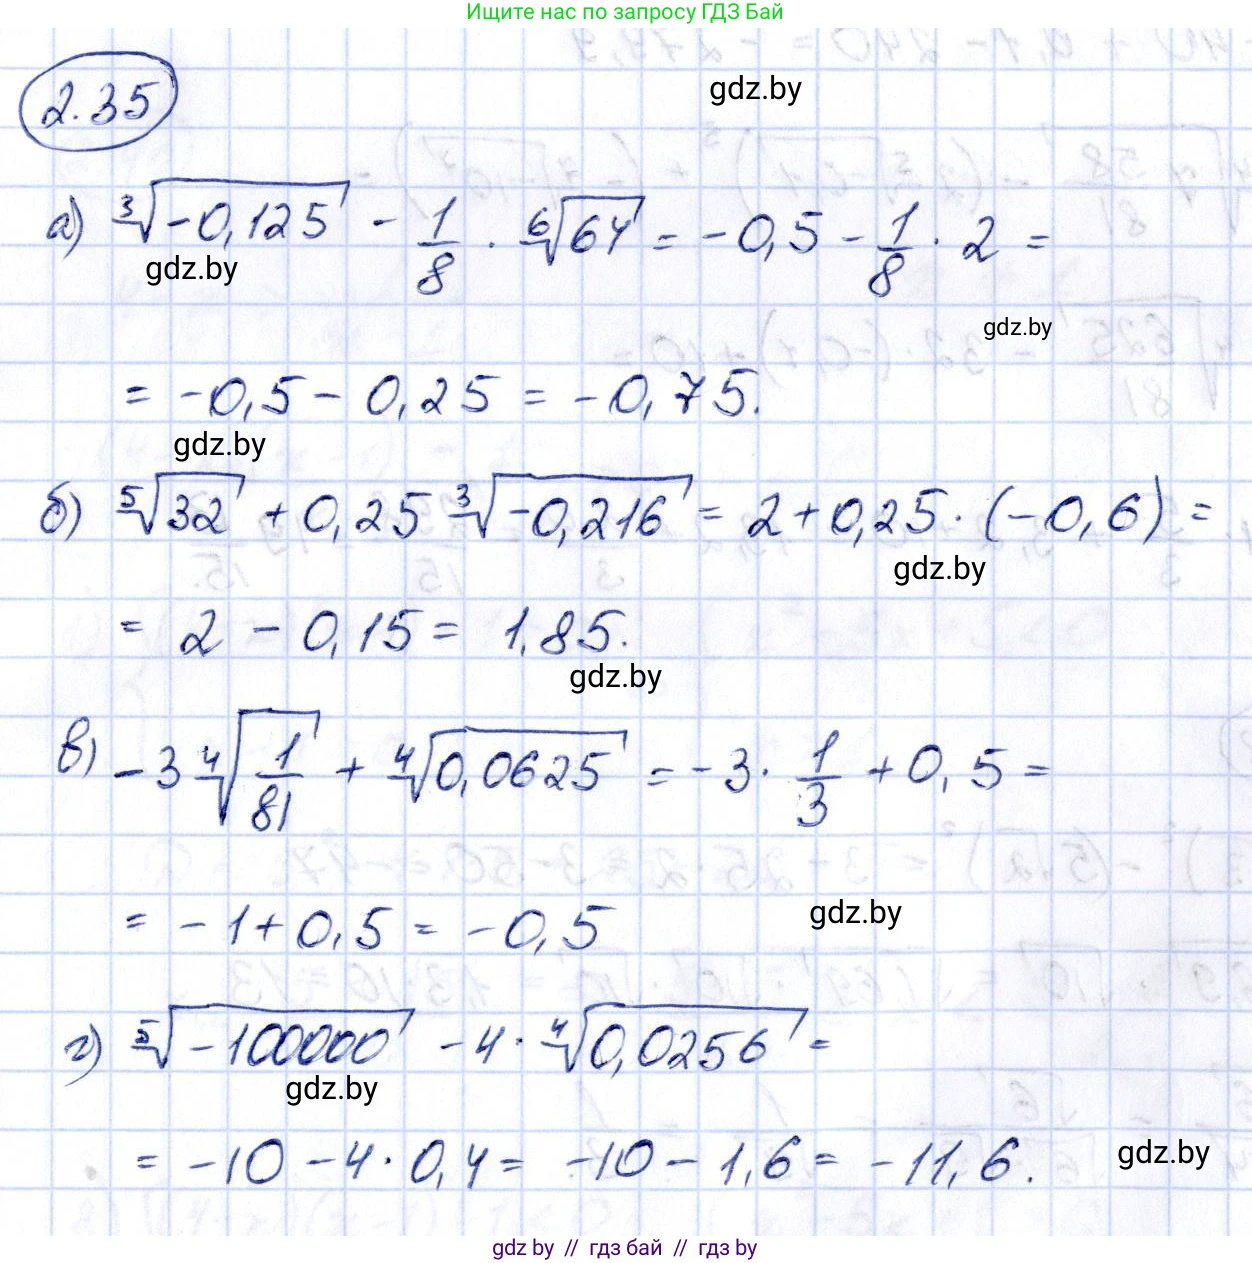 Ищите нас по запросу ГДЗ Бай
2.35
gdz.by
а) ∛(-0,125) - 1/8 · ⁶√64 = -0,5 - 1/8 · 2 =
gdz.by
gdz.by
= -0,5 - 0,25 = -0,75.
gdz.by
б) ⁵√32 + 0,25 ∛(-0,216) = 2 + 0,25 · (-0,6) =
gdz.by
= 2 - 0,15 = 1,85.
gdz.by
в) -3 ⁴√(1/81) + ⁴√0,0625 = -3 · 1/3 + 0,5 =
gdz.by
= -1 + 0,5 = -0,5
г) ⁵√(-100000) - 4 · ⁴√0,0256 =
gdz.by
= -10 - 4 · 0,4 = -10 - 1,6 = -11,6.
gdz.by
gdz by // гдз бай // гдз by